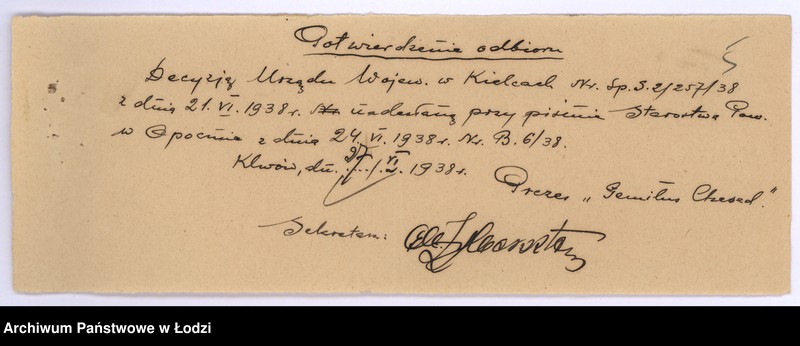 Potwierdzenie odbioru
5
Decyzję Urzędu Wojew. w Kielcach Nr. Sp.S.2/257/38
z dnia 21.VI.1938r. nadesłaną przy piśmie Starostwa Pow.
w Opocznie z dnia 24.VI.1938r. Nr. B.6/38.
Klwów, dn. 27/VI 1938r.
Prezes „Gemiłus Chesed."
Sekretarz:
Archiwum Państwowe w Łodzi